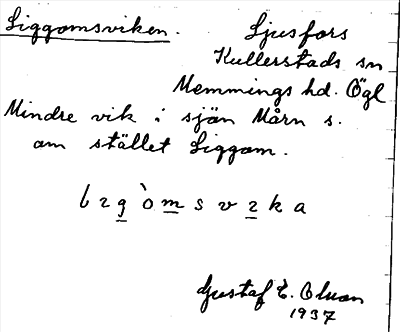 Liggomsviken. Ljusfors
Kullerstads sn
Memmings hd. Ögl
Mindre vik i sjön Mårn s.
om stället Liggom.
lzg`omsvzka
Gustaf E. Olson
1937